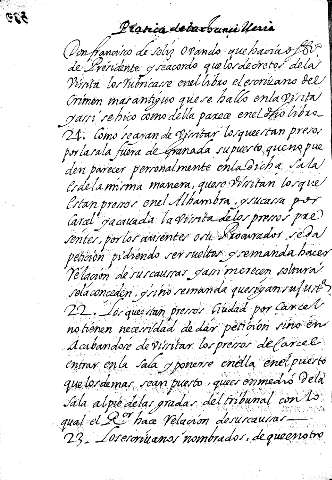 Practica de la Chancilleria
Don francisco de solis Ovando que hacia offº
de Presidente y se acordo que los decretos de la
Visita los Rubricase en el libro el escrivano del
Crimen mas antiguo que se hallo en la Visita
y assi se hiço como della parece en el dho libro
21. Como se an de Visitar los que estan presos
por la sala fuera de Granada supuesto, que no pue
den parecer personalmente en la dicha Sala
Es de la misma manera, que se Visitan los que
Estan presos en el Alhambra, y su casa por
Carcel y acavada la Visita de los presos pre
sentes, por los ausentes o su Procurador, se da
petición pidiendo ser sueltos y se manda hacer
Relacion de sus causas y assi merecen soltura
se la conceden, y sino se manda que sigan su Justª
22. Los que estan presos Ciudad por Carcel
no tienen necesidad de dar petición sino en
Acabandose de Visitar los presos de Carcel
entrar en la Sala y ponerse en ella en el puesto
que los demas, sean puesto, que es en medio de la
Sala al pie de las gradas, del tribunal con lo
qual el Ror hace Relacion de sus causas
23. Los escrivanos nombrados, de que en otro